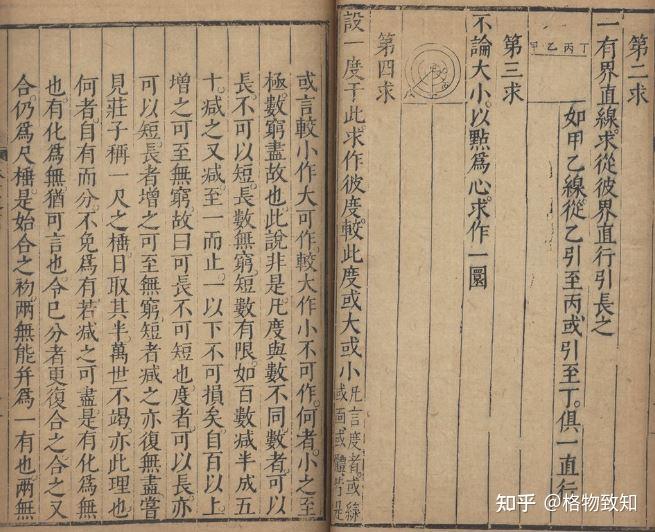 第二求
一有界直線求從彼界直行引長之
如甲乙線從乙引至丙或引至丁俱一直行
甲乙丙丁
第三求
不論大小以點爲心求作一圜
第四求
設一度于此求作彼度較此度或大或小
凡言度者或線
或面或體皆是
或言較小作大可作較大作小不可作何者小之至
極數窮盡故也此說非是凡度與數不同數者可以
長不可以短長數無窮短數有限如百數減半成五
十減之又減至一而止一以下不可損矣自百以上
增之可至無窮故曰可長不可短也度者可以長亦
可以短長者增之可至無窮短者減之亦復無盡嘗
見莊子稱一尺之棰日取其半萬世不竭亦此理也
何者自有而分不免爲有若減之可盡是有化爲無
也有化爲無猶可言也令已分者更復合之合之又
合仍爲尺棰是始合之初兩無能幷爲一有也兩無
知乎 @格物致知